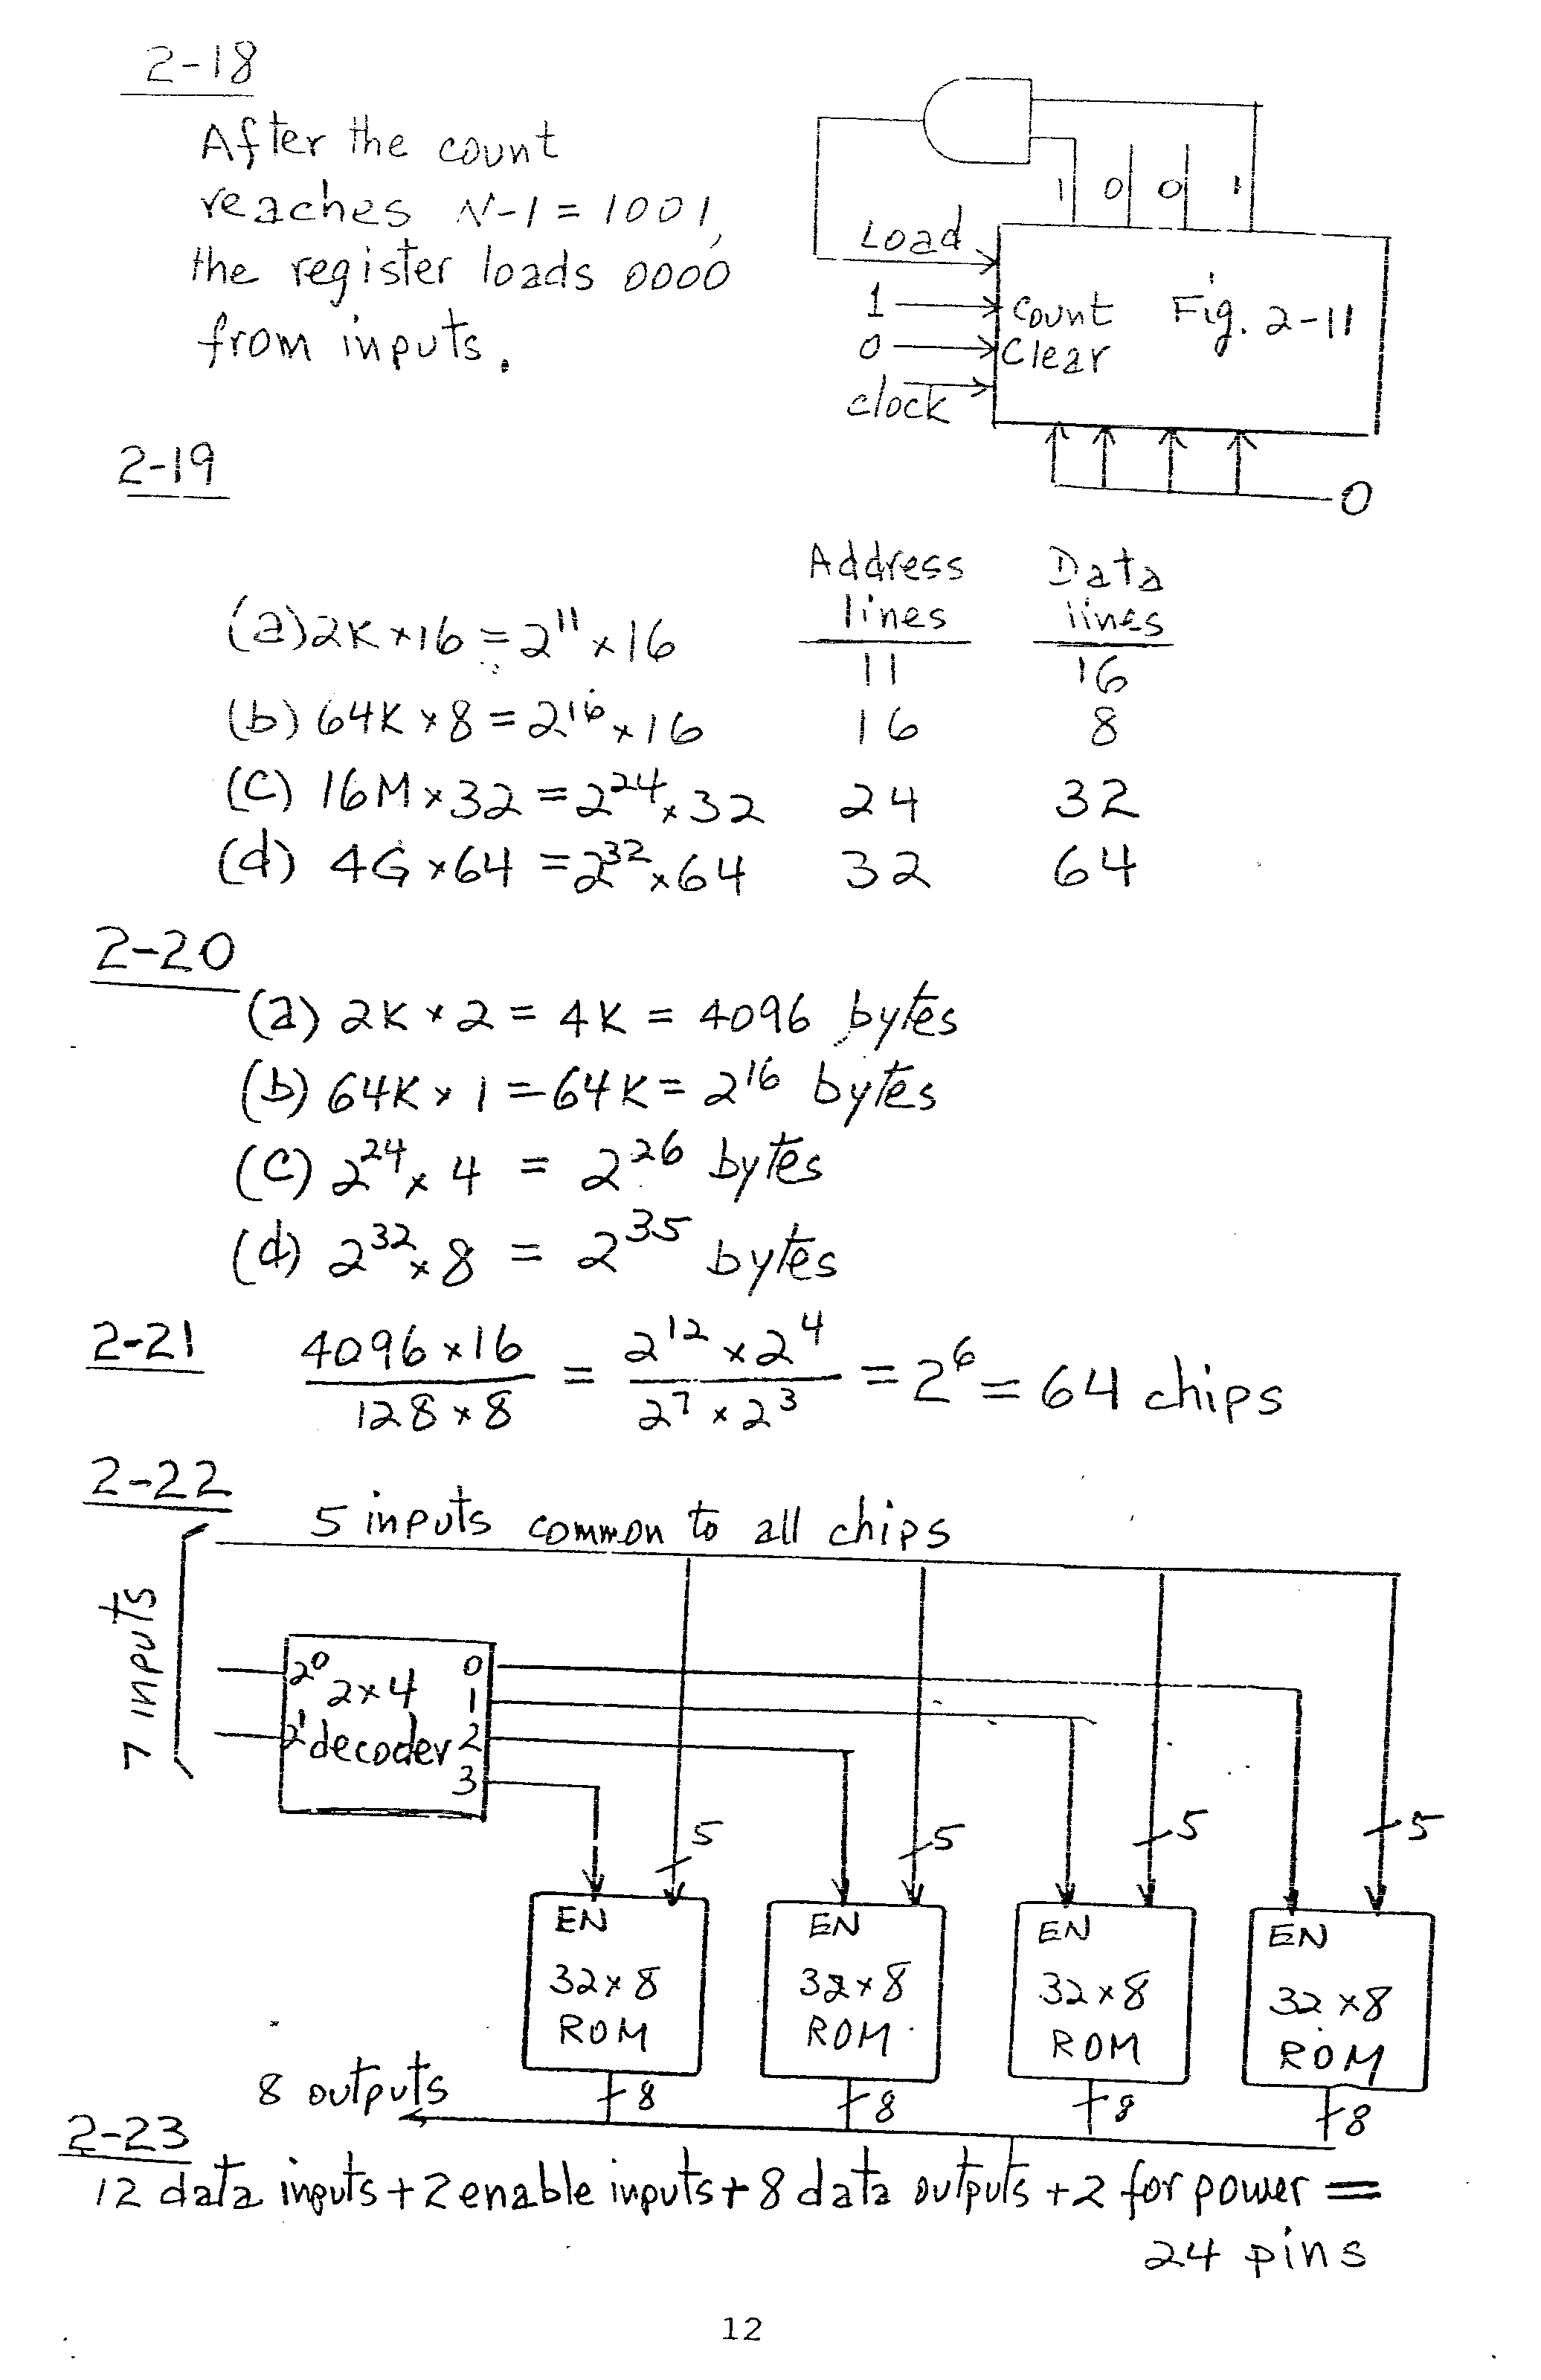 2-18
After the count
reaches N-1 = 1001,
the register loads 0000
from inputs.
1 0 0 1
Load
1 Count Fig. 2-11
0 Clear
clock
0
2-19
Address Data
lines lines
(a) 2K × 16 = 2¹¹ × 16 11 16
(b) 64K × 8 = 2¹⁶ × 16 16 8
(c) 16M × 32 = 2²⁴ × 32 24 32
(d) 4G × 64 = 2³² × 64 32 64
2-20
(a) 2K × 2 = 4K = 4096 bytes
(b) 64K × 1 = 64K = 2¹⁶ bytes
(c) 2²⁴ × 4 = 2²⁶ bytes
(d) 2³² × 8 = 2³⁵ bytes
2-21
4096 × 16 / 128 × 8 = 2¹² × 2⁴ / 2⁷ × 2³ = 2⁶ = 64 chips
2-22
5 inputs common to all chips
7 inputs
2⁰ 2×4 0
1
2¹ decoder 2
3
5 5 5 5
EN EN EN EN
32×8 32×8 32×8 32×8
ROM ROM ROM ROM
8 outputs 8 8 8 8
2-23
12 data inputs + 2 enable inputs + 8 data outputs + 2 for power =
24 pins
12